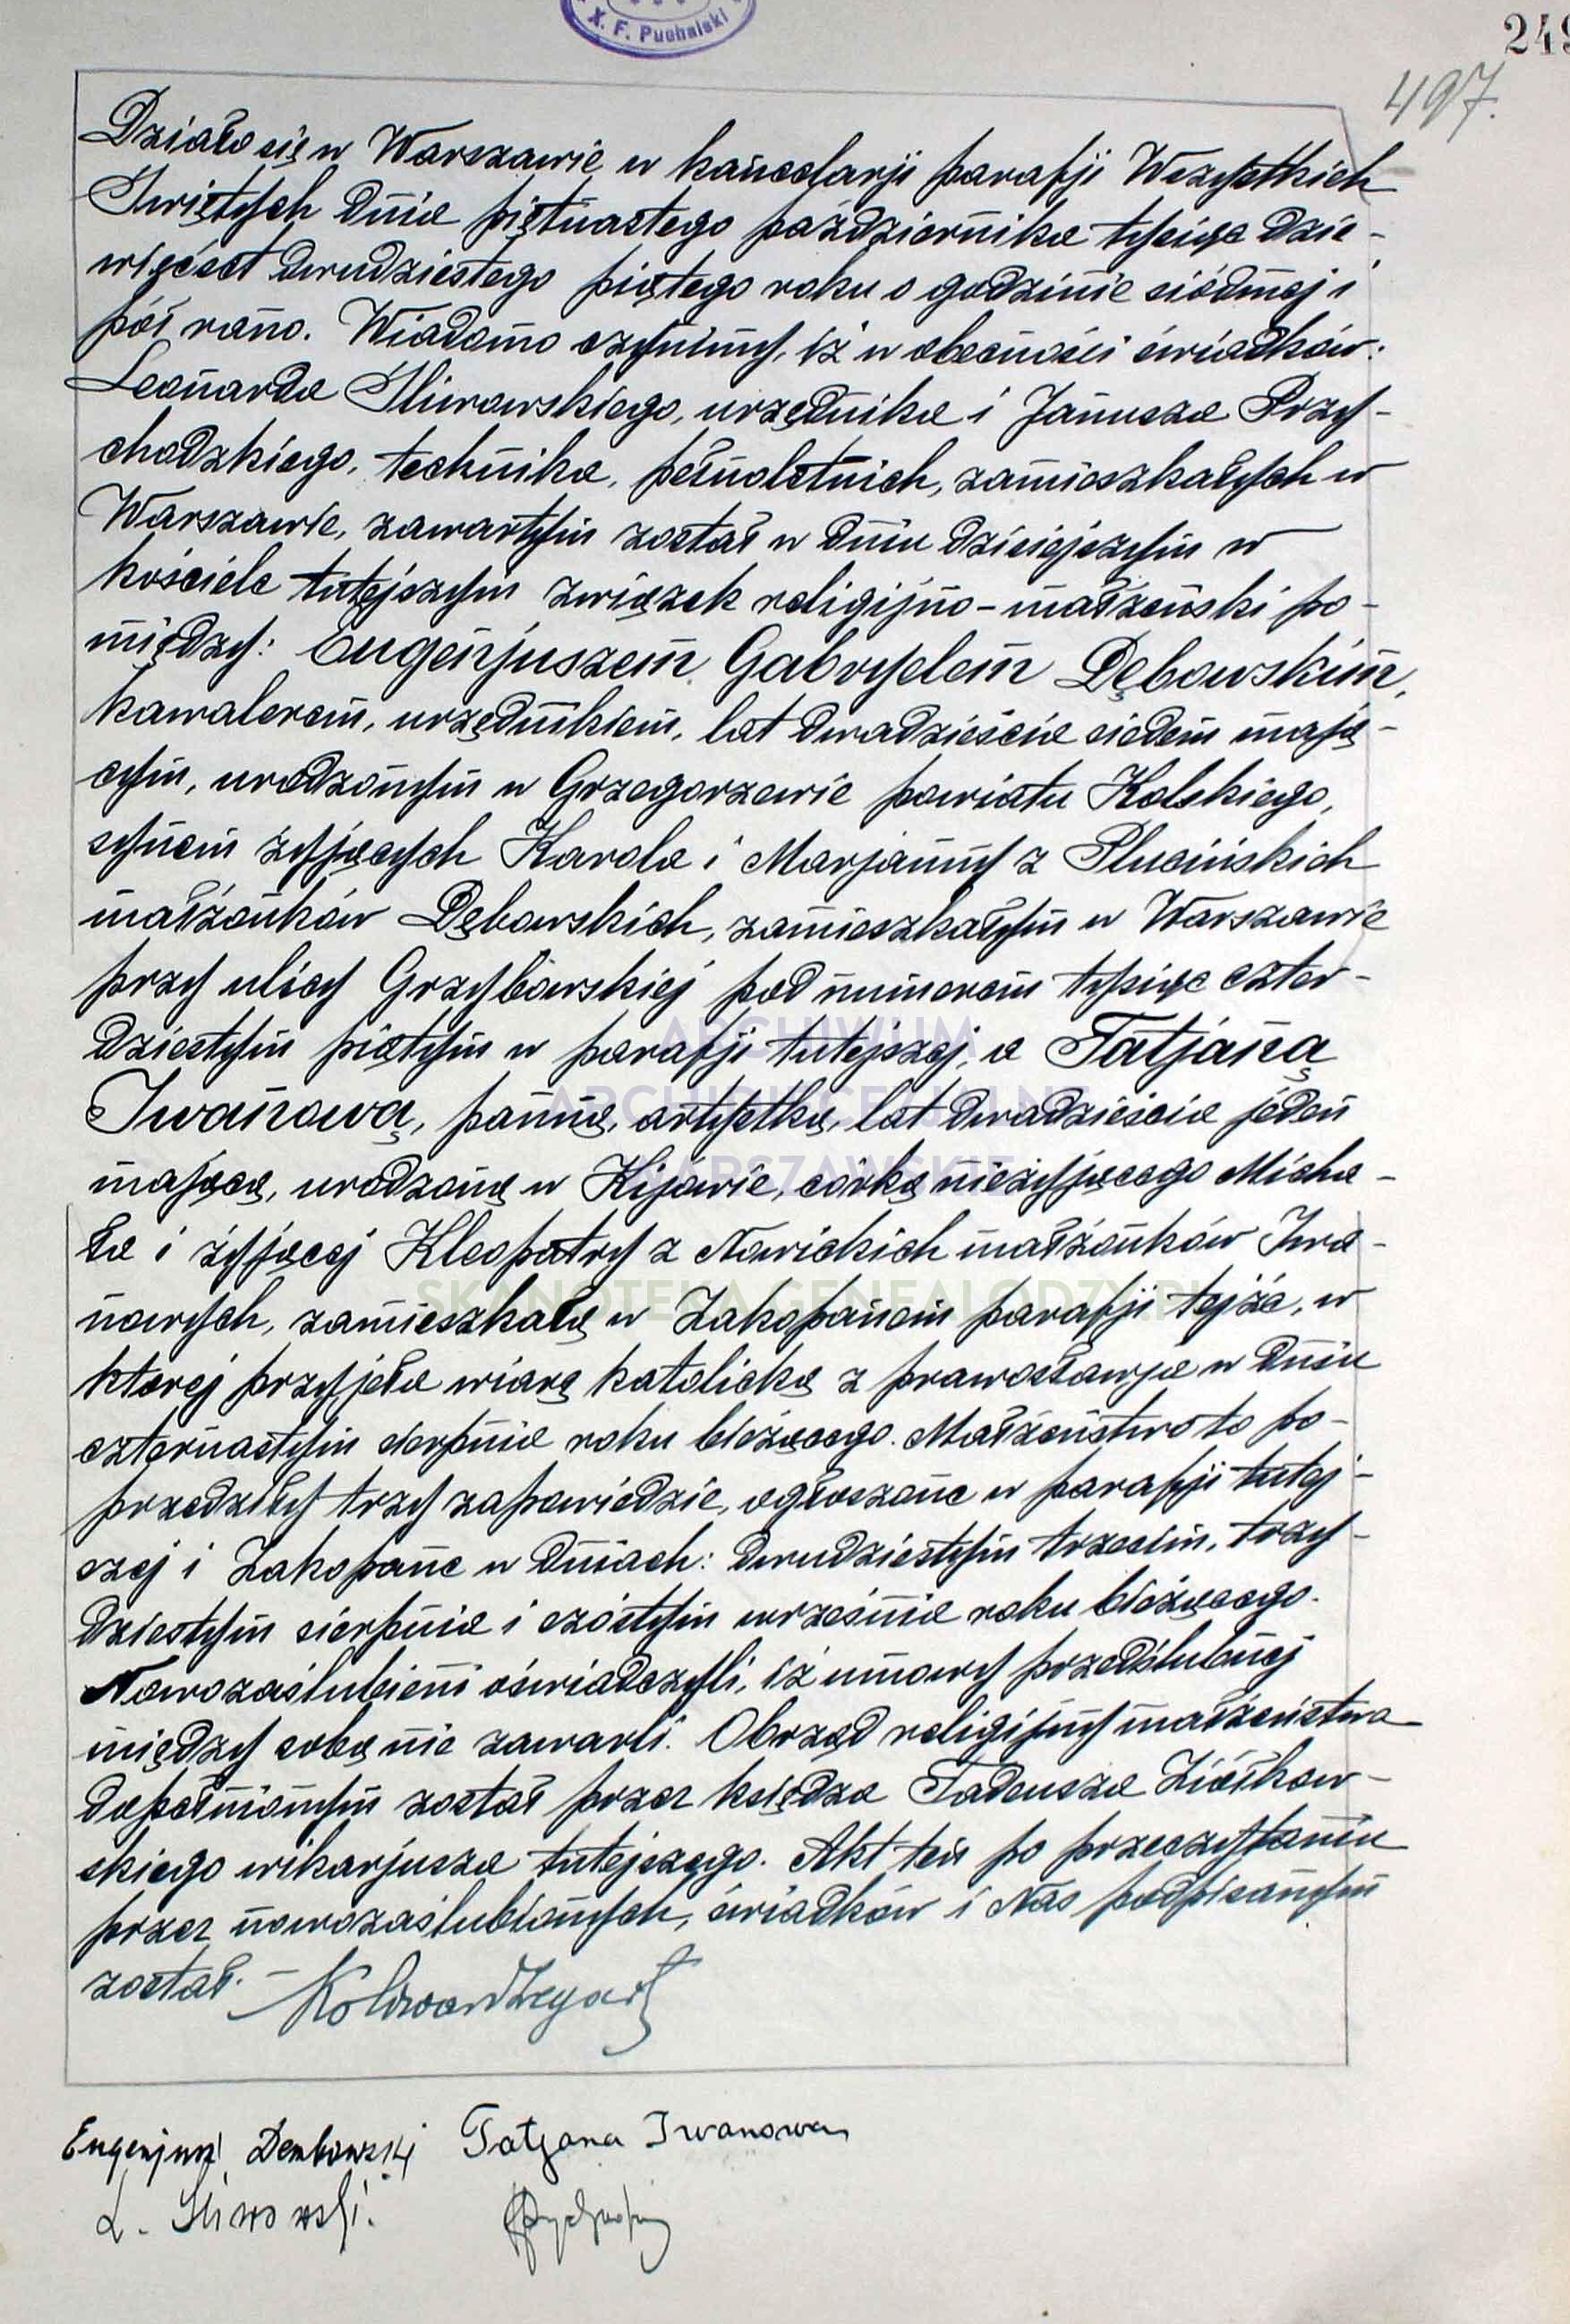 X. F. Puchalski
249
497.
Działo się w Warszawie w kancelarji parafji Wszystkich
Świętych dnia piętnastego października tysiąc dzie-
więćset dwudziestego piątego roku o godzinie siódmej i
pół rano. Wiadomo czynimy, iż w obecności świadków:
Leonarda Śliwowskiego, urzędnika i Janusza Przy-
chodzkiego, technika, pełnoletnich, zamieszkałych w
Warszawie, zawartym został w dniu dzisiejszym w
kościele tutejszym związek religijno-małżeński po-
między: Eugenjuszem Gabryelem Dębowskim,
kawalerem, urzędnikiem, lat dwadzieścia siedem mają-
cym, urodzonym w Grzegorzewie powiatu Kolskiego,
synem żyjących Karola i Marjanny z Plucińskich
małżonków Dębowskich, zamieszkałym w Warszawie
przy ulicy Grzybowskiej pod numerem tysiąc czter-
dziestym piątym w parafji tutejszej, a Tatjaną
Iwanową, panną, artystką, lat dwadzieścia jeden
mającą, urodzoną w Kijowie, córką nieżyjącego Micha-
ła i żyjącej Kleopatry z Nowickich małżonków Iwa-
nowych, zamieszkałą w Zakopanem parafji tejże, w
ktorej przyjęła wiarę katolicką z prawosławja w dniu
czternastym sierpnia roku bieżącego. Małżeństwo to po-
przedziły trzy zapowiedzie, ogłoszone w parafji tutej-
szej i Zakopane w dniach: dwudziestym trzecim, trzy-
dziestym sierpnia i szóstym września roku bieżącego.
Nowozaślubieni oświadczyli, iż umowy przedślubnej
między sobą nie zawarli. Obrzęd religijny małżeństwa
dopełnionym został przez księdza Tadeusza Ziółkow-
skiego wikarjusza tutejszego. Akt ten po przeczytaniu
przez nowozaślubionych, świadków i Nas podpisanym
został. -
Eugenjusz Dembowski Tatjana Iwanowa
L. Śliwowski.
ARCHIWUM
ARCHIDIECEZJALNE
WARSZAWSKIE
SKANOTEKA.GENEALODZY.PL